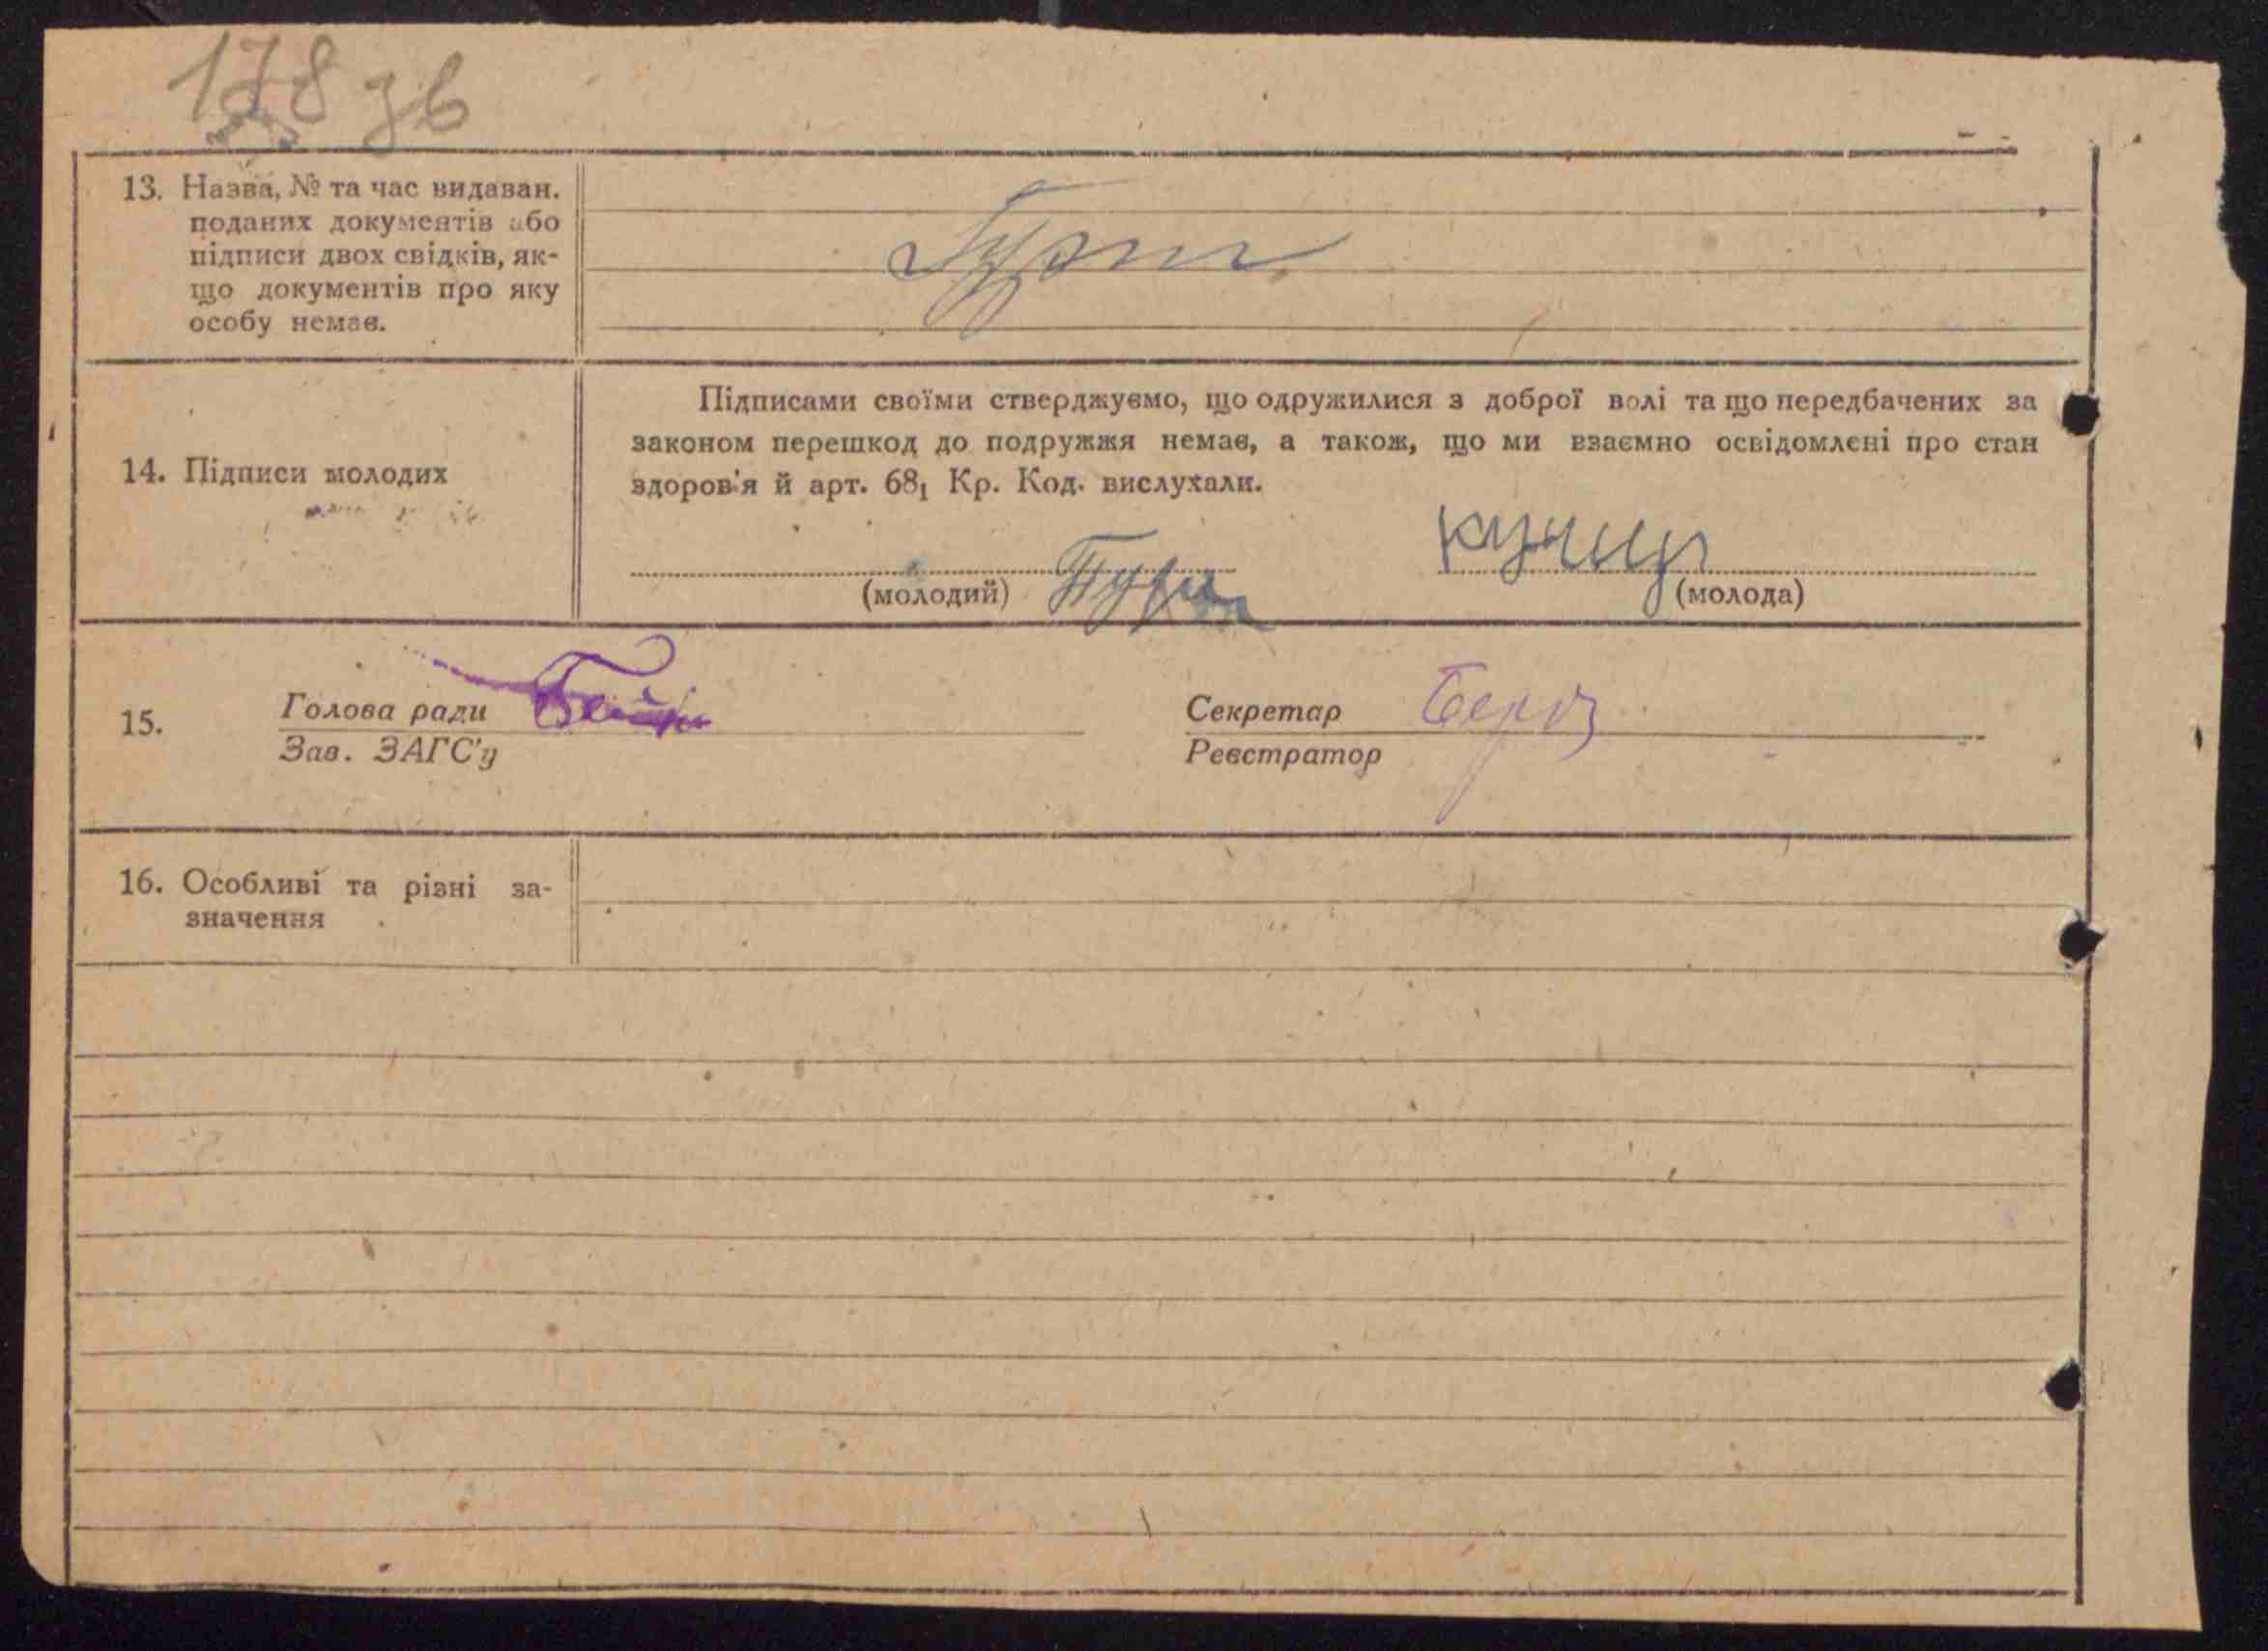 178 зв
13. Назва, № та час видаван.
поданих документів або
підписи двох свідків, як-
що документів про яку
особу немає.
14. Підписи молодих
Підписами своїми стверджуємо, що одружилися з доброї волі та що передбачених за
законом перешкод до подружжя немає, а також, що ми взаємно освідомлені про стан
здоров'я й арт. 68₁ Кр. Код. вислухали.
(молодий)
(молода)
15.
Голова ради
Зав. ЗАГС'у
Секретар
Реєстратор
16. Особливі та різні за-
значення